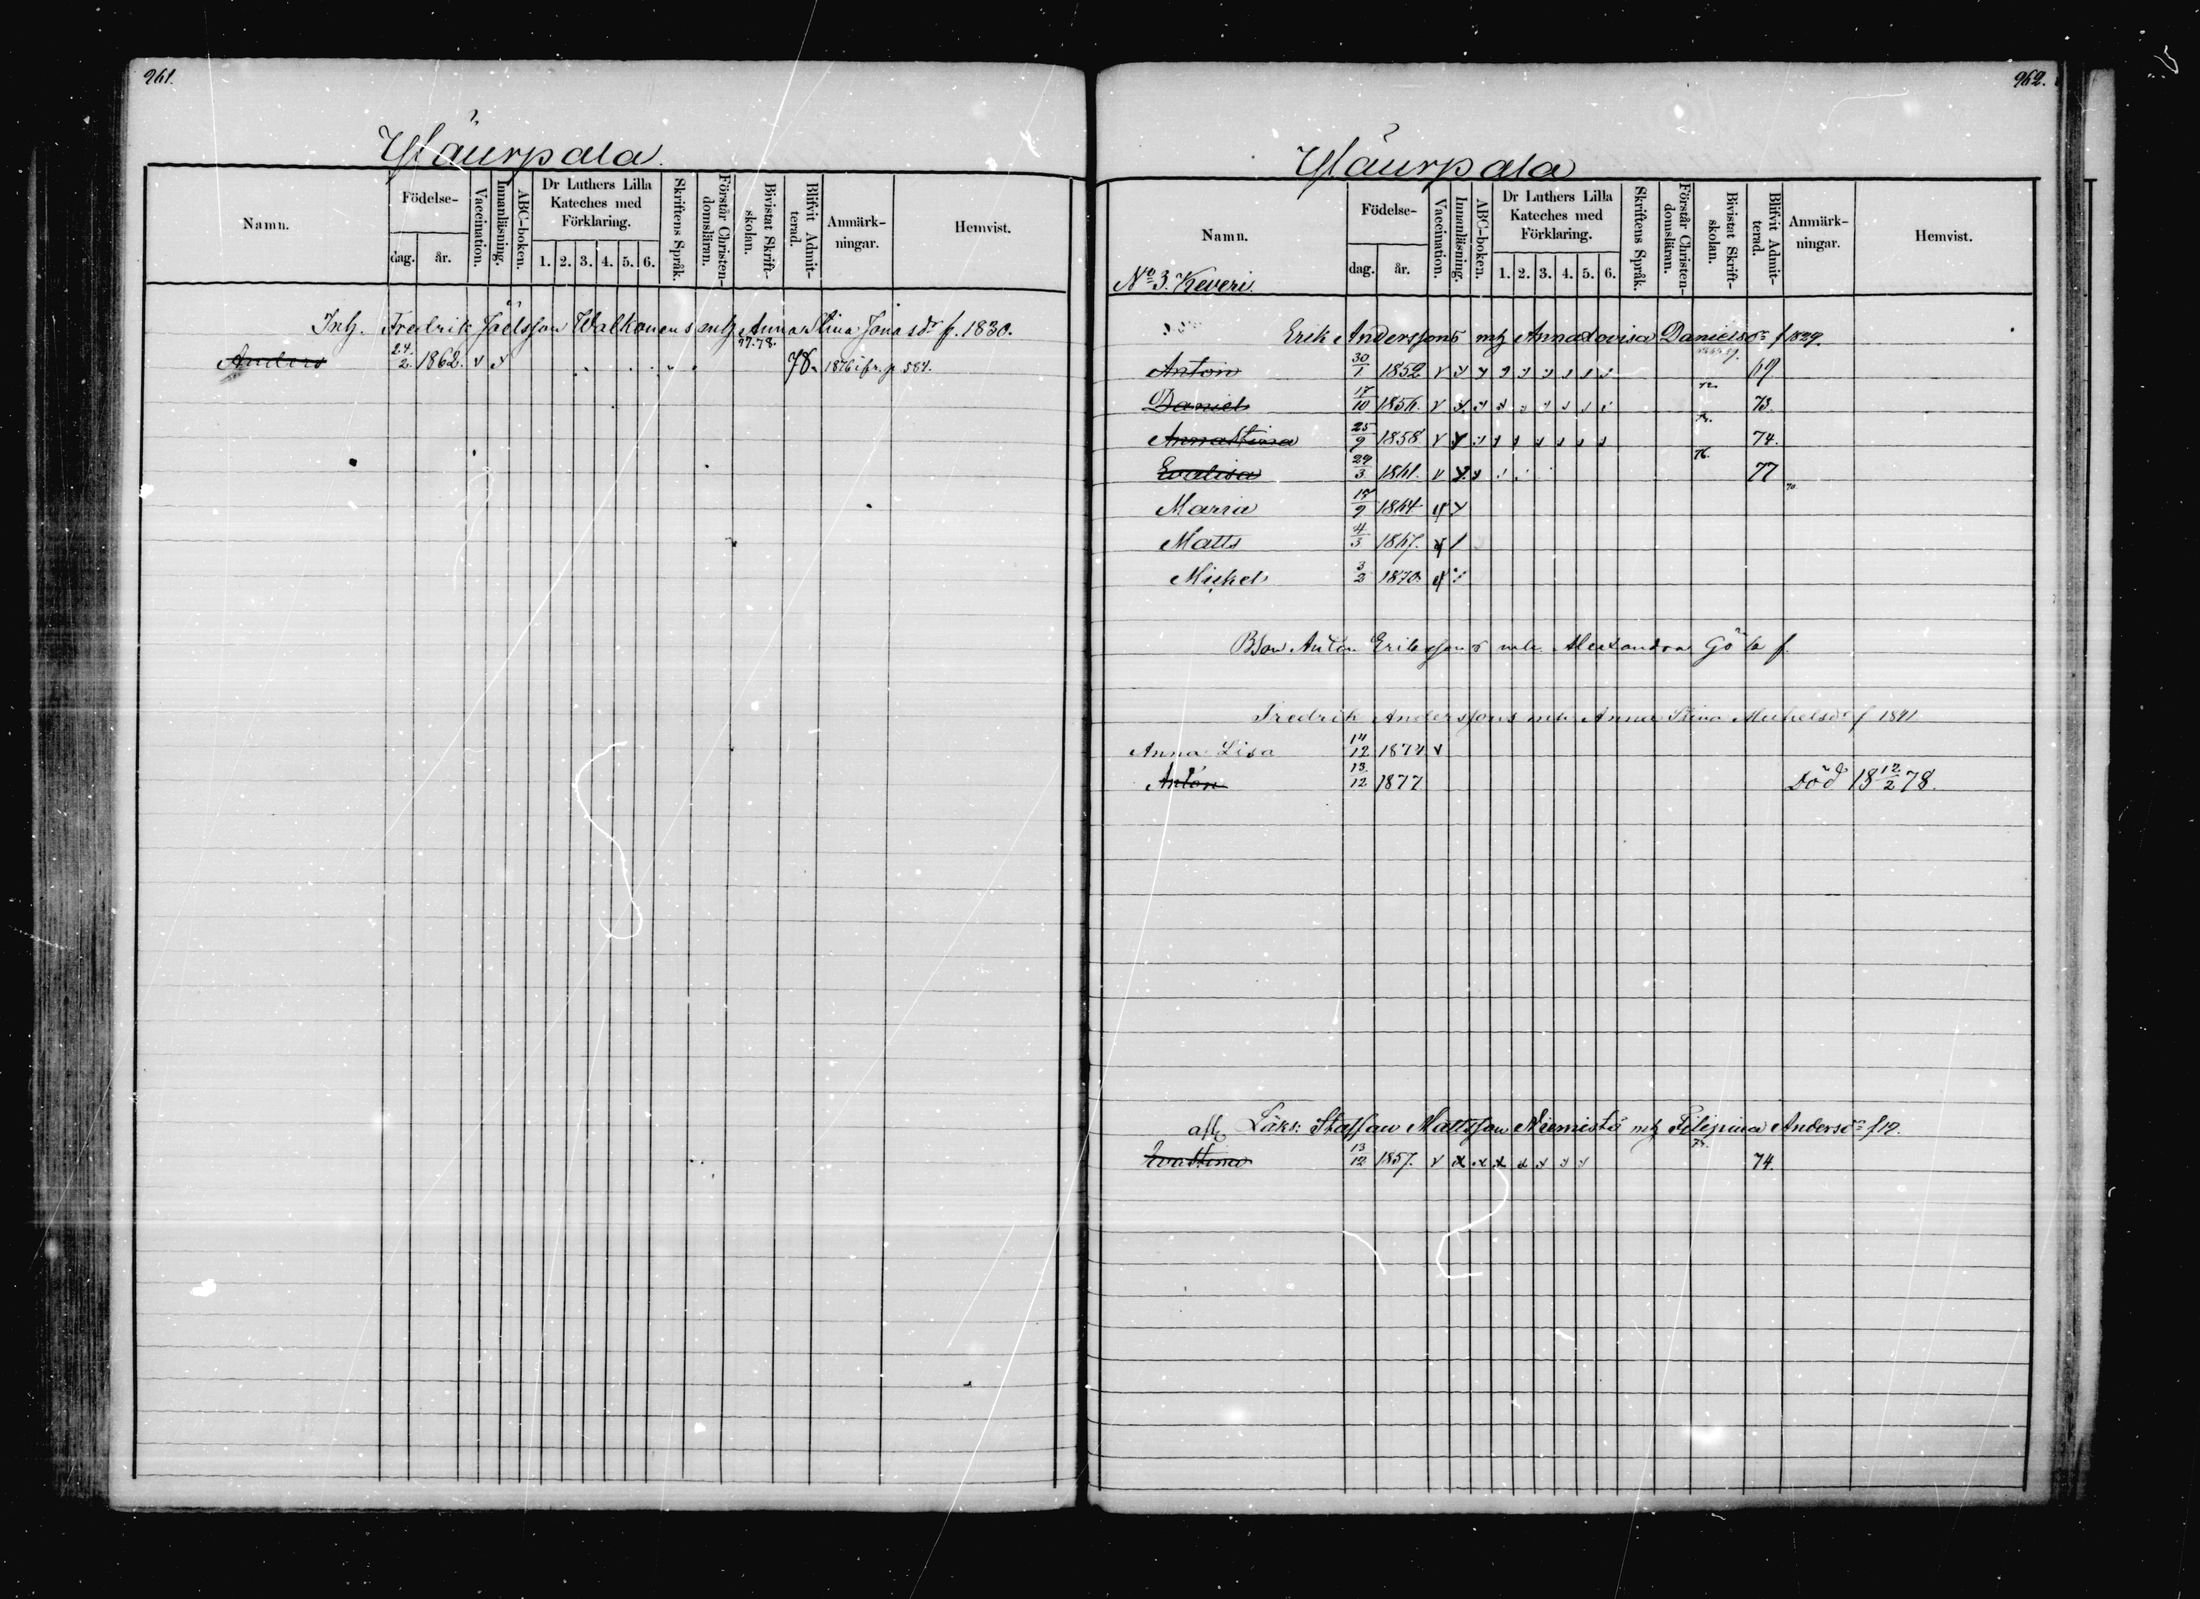 261.
Yläurpala.
Namn. Födelse- dag. år. Vaccination. Innanläsning. ABC-boken. Dr Luthers Lilla Kateches med Förklaring. 1. 2. 3. 4. 5. 6. Skriftens Språk. Förstår Christendomsläran. Bivistat Skriftskolan. Blifvit Admitterad. Anmärkningar. Hemvist.
Inh. Fredrik Joelsson Walkonens mh Anna Stina Jonasdr f. 1830.
Anders 24/2 1862. v v 77.78. 78. 1876 i fr. p 584.
262.
Yläurpala
Namn. Födelse- dag. år. Vaccination. Innanläsning. ABC-boken. Dr Luthers Lilla Kateches med Förklaring. 1. 2. 3. 4. 5. 6. Skriftens Språk. Förstår Christendomsläran. Bivistat Skriftskolan. Blifvit Admitterad. Anmärkningar. Hemvist.
No 3. Keveri.
Erik Anderssons mh Anna Lovisa Danielsdr f 1829.
Anton 30/1 1852 69
Daniel 17/10 1856. 73.
Anna Stina 25/9 1858 74.
Eva Lisa 29/3 1861. 76. 77
Maria 17/9 1864
Matts 4/3 1867.
Mickel 3/2 1870
Bson Anton Erikssons mh Alexandra f.
Fredrik Anderssons mh Anna Stina Mickelsdr f 1841
Anna Lisa 14/12 1874 v
Anton 13/12 1877 Död 18 12/2 78.
Staffan Mattsson Niemistö mh Filipina Andersdr f 12.
Eva Stina 13/12 1857. 74.